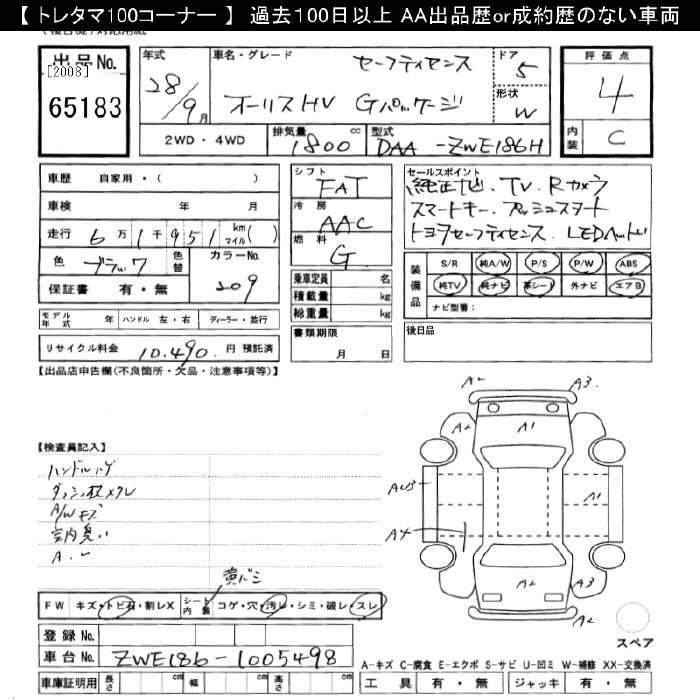 【 トレタマ100コーナー 】 過去100日以上 AA出品歴or成約歴のない車両
出品No.
[2008]
65183
年式
28/9月
車名・グレード
セーフティセンス
オーリスHV Gパッケージ
ドア
5
形状
W
評価点
4
内装
C
2WD・4WD
排気量 1800 cc
型式 DAA -ZWE186H
車歴 自家用・( )
車検 年 月
走行 6万1千951 km マイル( )
色 ブラック 色替
カラーNo. 209
保証書 有・無
モデル年式 年 ハンドル 左・右 ディーラー・並行
リサイクル料金 10.490 円 預託済
シフト FAT
冷房 AAC
燃料 G
乗車定員 名
積載量 kg
総重量 kg
書類期限
月 日
セールスポイント
純正ナビ. TV. Rカメラ
スマートキー. プッシュスタート
トヨタセーフティセンス. LEDヘッド
装備品
S/R 純A/W P/S P/W ABS
純TV 純ナビ 革シート 外ナビ エアB
ナビ型番:
後日品
【出品店申告欄(不良箇所・欠品・注意事項等)】
【検査員記入】
ハンドルハゲ
A/Wキズ
室内臭い
A2 A3
A2 A1
AU3 A1
A4
A2 A3
FW キズ・トビ石・割レX
シート内装 コゲ・穴・汚レ・シミ・破レ・スレ
登録No.
車台No. ZWE186-1005498
車庫証明用 長さ cm 幅 cm 高さ cm
スペア
A-キズ C-腐食 E-エクボ S-サビ U-凹ミ W-補修 XX-交換済
工具 有・無 ジャッキ 有・無